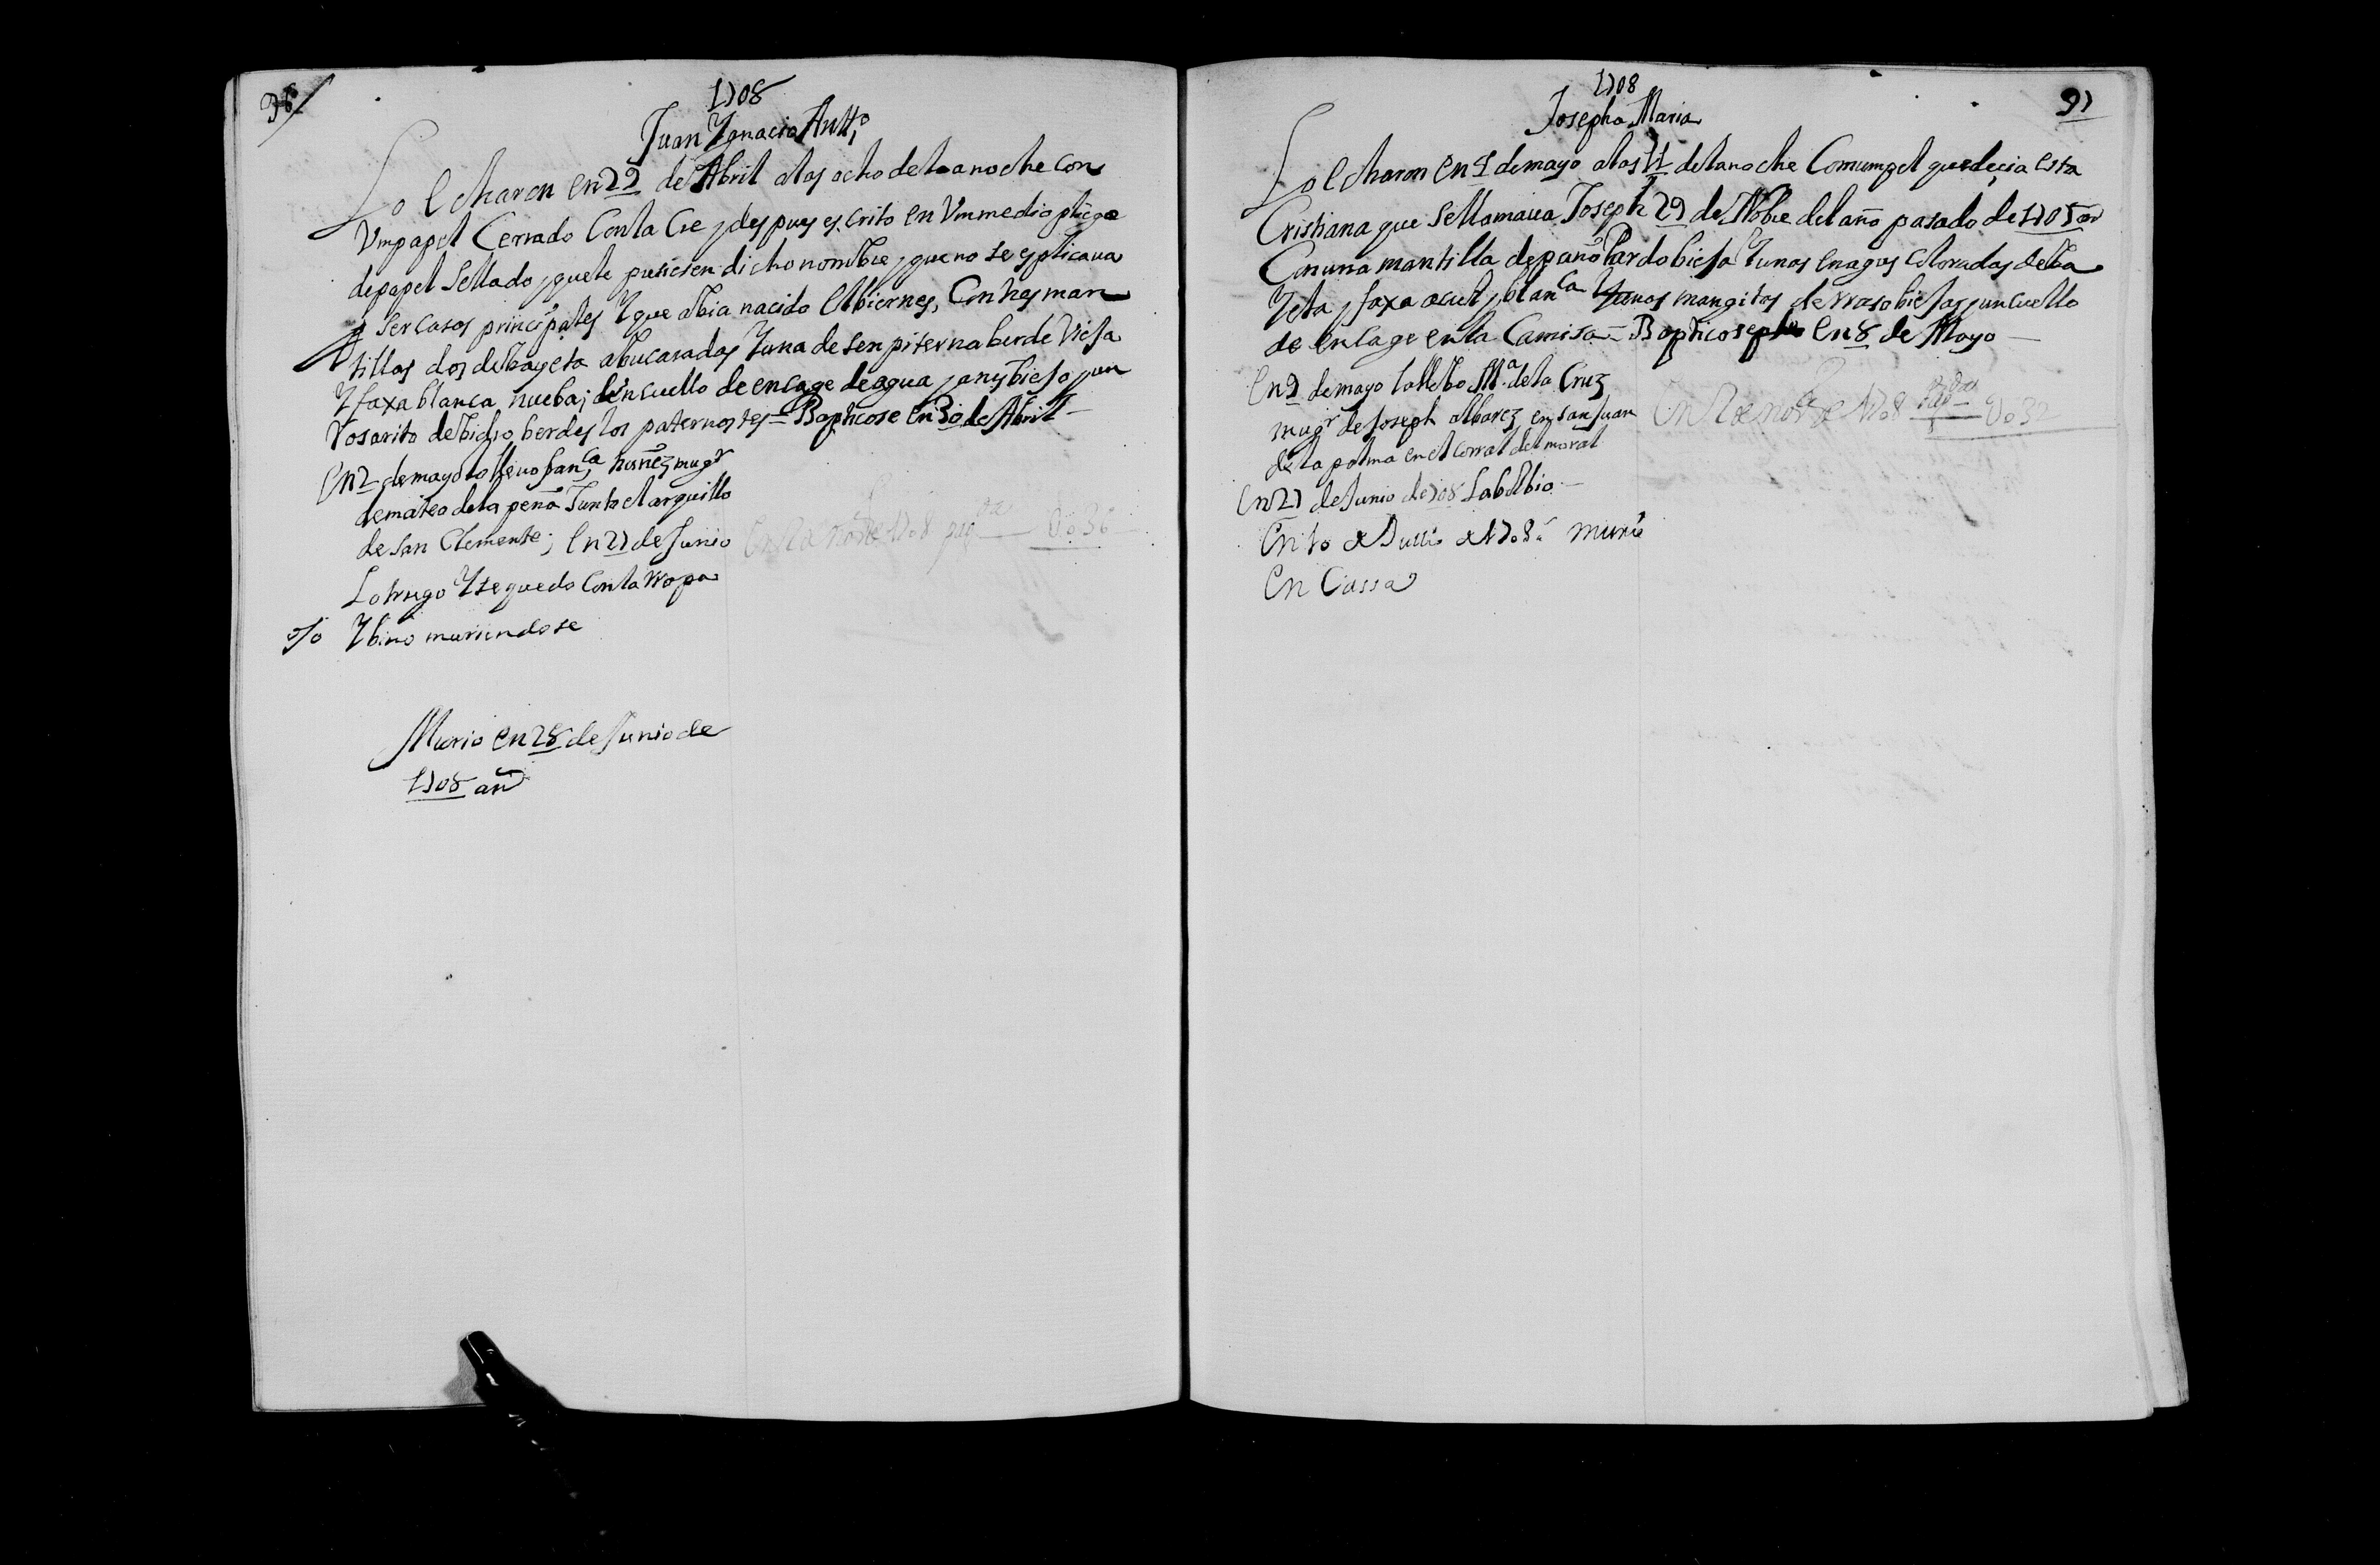 36
1708
Juan Ygnacio Antt.o
Lo echaron en 29 de Abril a las ocho de la anoche con
Vm papel Cerrado Con la Cre y despues escrito en Vm medio pliego
de papel Sellado y que le pusiesen dicho nombre y que no se esplicaua
p ser casos principales Y que abia nacido el biernes, Con tres man
tillas dos de bayeta abucaradas Y una de senpiterna berde Viesa
Y faxa blanca nueba; Un cuello de encage de agua y anus bieso y un
Rosarito de bidro berdes los paternostes = Bapticose en 30 de Abril
En 2 de mayo lo lleuo fan.ca nuñez mugr
de mateo de la peña Junto el arquillo
de San Clemente; En 27 de Junio
Lo trugo Y se quedo Con la Rropa
Y bino muriendose
Murio en 28 de Junio de
1708 añ
1708
37
Josepha Maria
La echaron en 7 de mayo a las 11 de la noche Com um pel que decia esta
Cristiana que se llamaua Joseph 29 de Nobre del año pasado de 1705
Con una mantilla de paño Pardo biesa Y unas enaguas Coloradas de ba
Yeta y faxa acul y blanca Y unos mangitos de rraso biesos y un cuello
de encage en la Camisa = Bapticose en 8 de Mayo
En 9 de mayo la llebo M.a de la Cruz
mugr de Joseph albarez en san Juan
de la palma en el corral del moral
En 27 de Junio de 708 La bolbio
En 10 de Jullio de 1708 murio
En Cassa